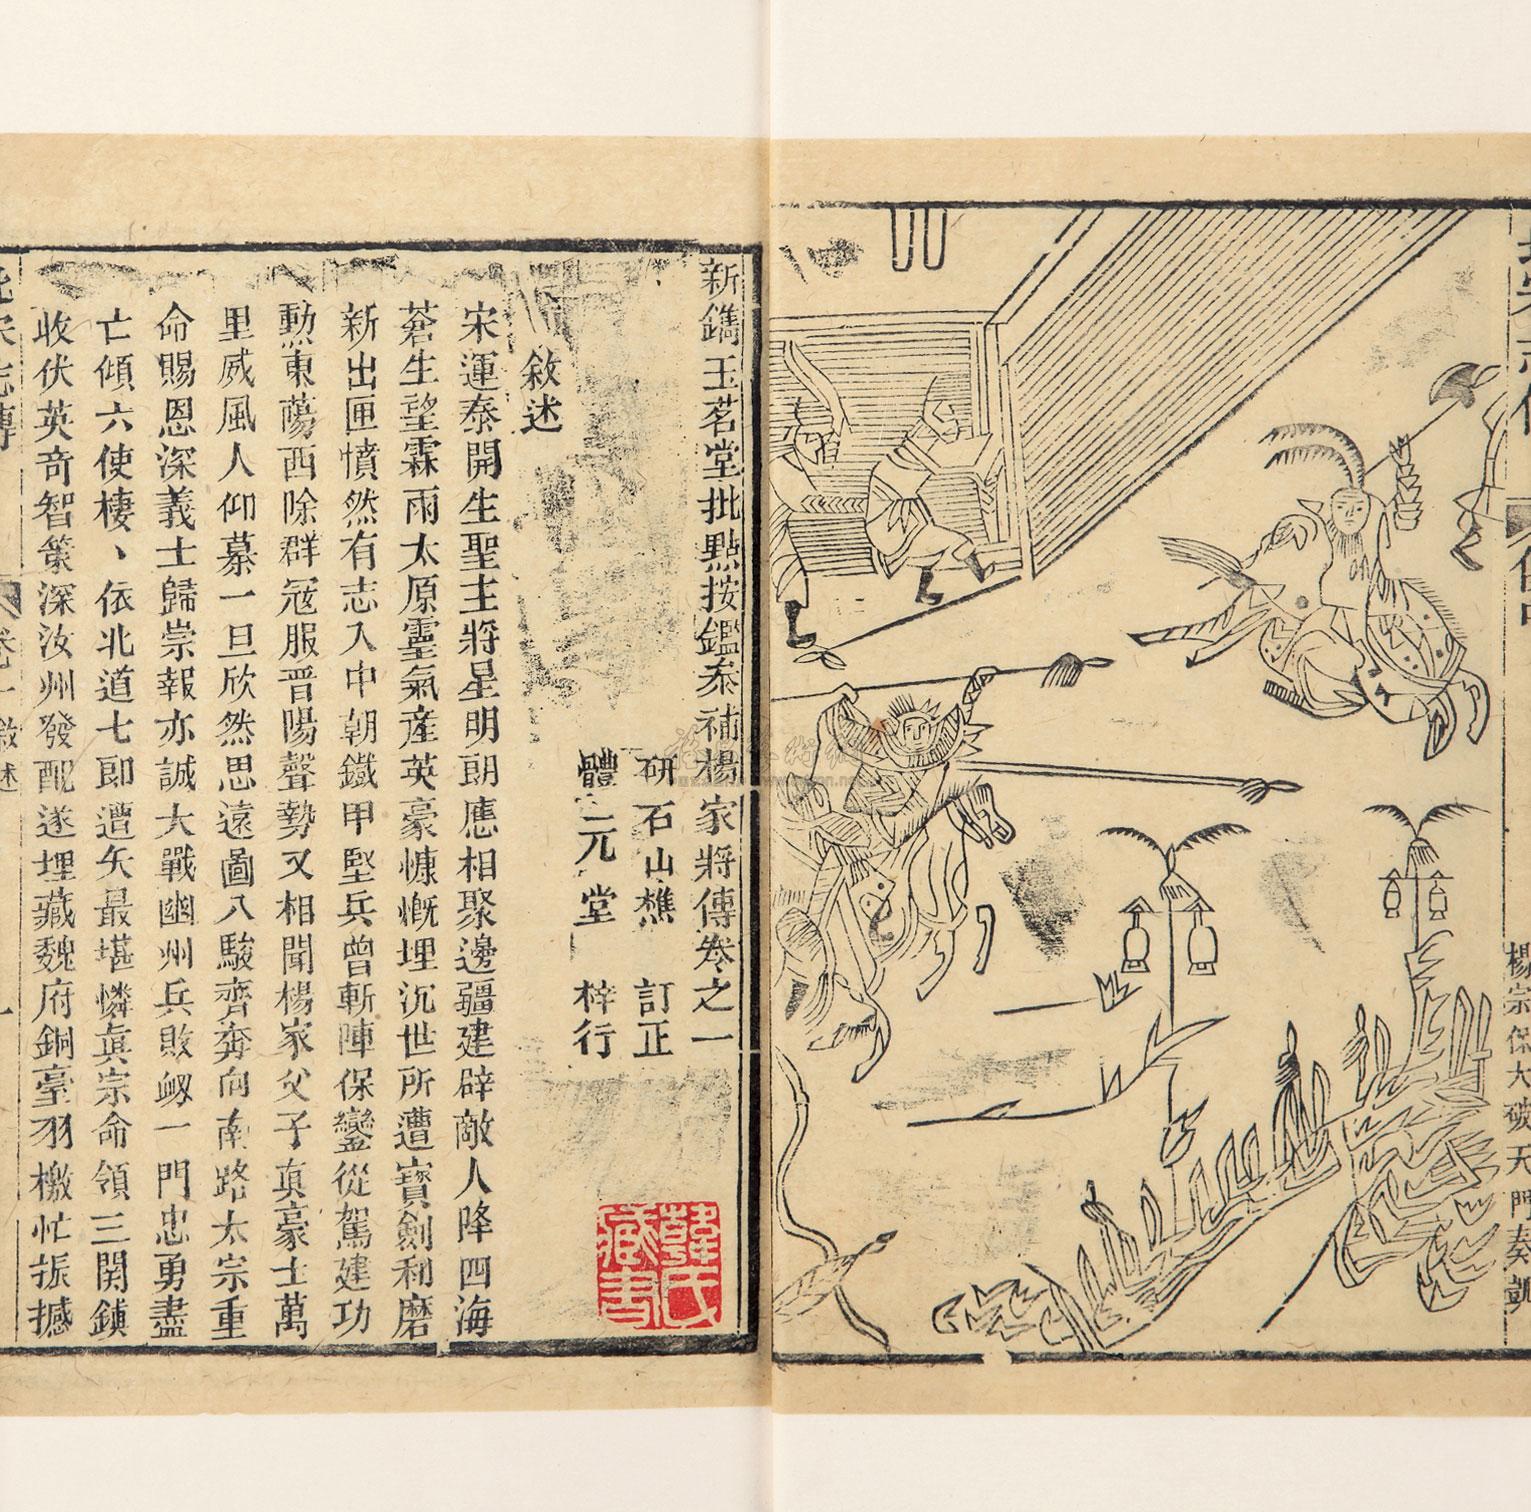 楊宗保大破天門奏凱
新鐫玉茗堂批點按鑑參補楊家將傳卷之一
研石山樵 訂正
體元堂 梓行
敘述
宋運泰開生聖主將星明朗應相聚邊疆建辟敵人降四海
蒼生望霖雨太原靈氣產英豪慷慨埋沉世所遭寶劍利磨
新出匣憤然有志入中朝鐵甲堅兵曾斬陣保鑾從駕建功
勲東蕩西除群冦服晋陽聲勢又相聞楊家父子真豪士萬
里威風人仰慕一旦欣然思遠圖八駿齊奔向南路太宗重
命賜恩深義士歸崇報亦誠大戰幽州兵敗衂一門忠勇盡
亡傾六使棲丶依北道七郎遭矢最堪憐真宗命領三関鎮
收伏英奇智策深汝州發配遂埋藏魏府銅臺羽檄忙振撼
北宋志傳
卷一敘述
一
薛氏藏書